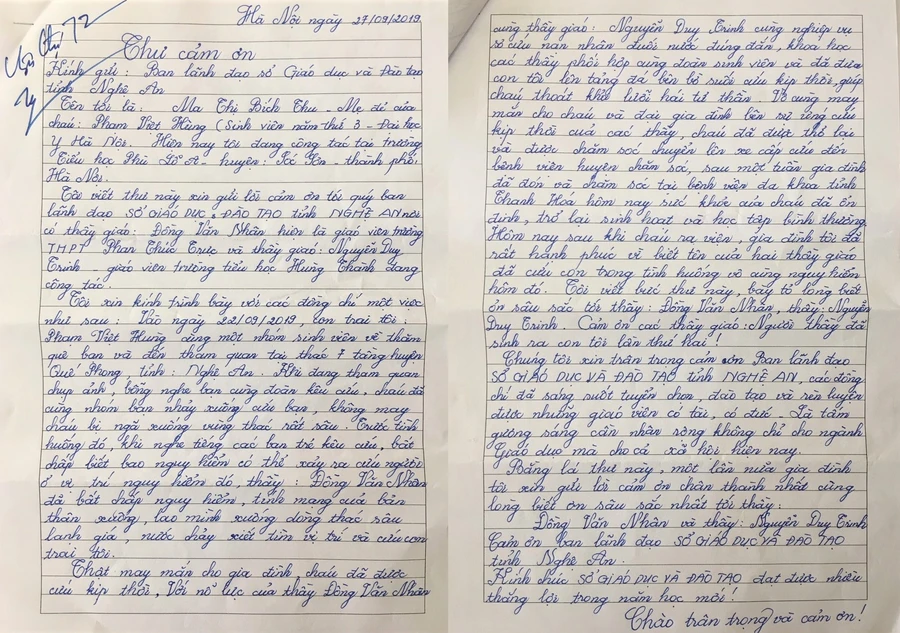 Hà Nội ngày 27/09/2019
Thư cảm ơn
Kính gửi: Ban lãnh đạo sở Giáo dục và Đào tạo
tỉnh Nghệ An
Tên tôi là: Ma Thị Bích Thu - Mẹ đẻ của
cháu: Phạm Việt Hùng (Sinh viên năm thứ 3 - Đại học
Y Hà Nội. Hiện nay tôi đang công tác tại trường
Tiểu học Phù Lỗ A - huyện: Sóc Sơn - thành phố
Hà Nội.
Tôi viết thư này xin gửi lời cảm ơn tới quý ban
lãnh đạo SỞ GIÁO DỤC & ĐÀO TẠO tỉnh NGHỆ AN nơi
có thầy giáo: Đồng Văn Nhân hiện là giáo viên trường
THPT Phan Thúc Trực và thầy giáo: Nguyễn Duy
Trinh - giáo viên trường tiểu học Hưng Thành đang
công tác.
Tôi xin kính trình bày với các đồng chí một việc
như sau: Vào ngày 22/09/2019, con trai tôi:
Phạm Việt Hùng cùng một nhóm sinh viên về thăm
quê bạn và đến tham quan tại thác 7 tầng huyện
Quế Phong tỉnh: Nghệ An. Khi đang tham quan
chụp ảnh, bỗng nghe bạn cùng đoàn kêu cứu, cháu đã
cùng nhóm bạn nhảy xuống cứu bạn, không may
cháu bị ngã xuống vùng thác rất sâu. Trước tình
huống đó, khi nghe tiếng các bạn trẻ kêu cứu, bất
chấp biết bao nguy hiểm có thể xảy ra cứu người
ở vị trí nguy hiểm đó, thầy: Đồng Văn Nhân
đã bất chấp nguy hiểm, tính mạng của bản
thân xuống, lao mình xuống dòng thác sâu
lạnh giá, nước chảy xiết tìm vị trí và cứu con
trai tôi.
Thật may mắn cho gia đình cháu đã được
cứu kịp thời, Với nỗ lực của thầy Đồng Văn Nhân
cùng thầy giáo: Nguyễn Duy Trinh cùng nghiệp vụ
sơ cứu nạn nhân đuối nước đúng đắn, khoa học
các thầy phối hợp cùng đoàn sinh viên và đã đưa
con tôi lên tảng đá bên bờ suối cứu kịp thời, giúp
cháu thoát khỏi lưỡi hái tử thần. Vô cùng may
mắn cho cháu và đại gia đình bên sự ứng cứu
kịp thời của các thầy, cháu đã được thở lại
và được chăm sóc chuyển lên xe cấp cứu đến
bệnh viện huyện chăm sóc, sau một tuần gia đình
đã đón và chăm sóc tại bệnh viện đa khoa tỉnh
Thanh Hoá hôm nay sức khỏe của cháu đã ổn
định, trở lại sinh hoạt và học tập bình thường.
Hôm nay sau khi cháu ra viện, gia đình tôi đã
rất hạnh phúc vì biết tên của hai thầy giáo
đã cứu con trong tình huống vô cùng nguy hiểm
hôm đó. Tôi viết bức thư này, bày tỏ lòng biết
ơn sâu sắc tới thầy: Đồng Văn Nhân, thầy: Nguyễn
Duy Trinh. Cảm ơn các thầy giáo: Người thầy đã
sinh ra con tôi lần thứ hai!
Chúng tôi xin trân trọng cảm ơn Ban lãnh đạo
SỞ GIÁO DỤC VÀ ĐÀO TẠO tỉnh NGHỆ AN, các đồng
chí đã sáng suốt tuyển chọn, đào tạo và rèn luyện
được những giáo viên có tài, có đức. Là tấm
gương sáng cần nhân rộng không chỉ cho ngành
Giáo dục mà cho cả xã hội hiện nay.
Bằng lá thư này, một lần nữa gia đình
tôi xin gửi lời cảm ơn chân thành nhất cùng
lòng biết ơn sâu sắc nhất tới thầy:
Đồng Văn Nhân và thầy: Nguyễn Duy Trinh
Cảm ơn ban lãnh đạo SỞ GIÁO DỤC VÀ ĐÀO TẠO
tỉnh Nghệ An.
Kính chúc SỞ GIÁO DỤC VÀ ĐÀO TẠO đạt được nhiều
thắng lợi trong năm học mới!
Chào trân trọng và cảm ơn!